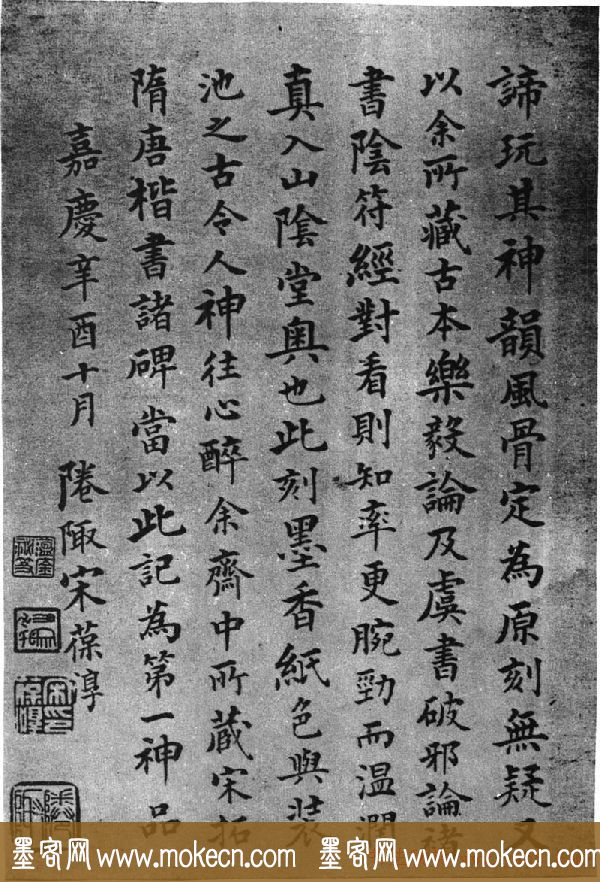 諦玩其神韻風骨定為原刻無疑又
以余所藏古本樂毅論及虞書破邪論
書陰符經對看則知率更腕勁而温潤
真入山陰堂奥也此刻墨香紙色與裝
池之古令人神往心醉余齋中所藏宋拓
隋唐楷書諸碑當以此記為第一神品
嘉慶辛酉十月 陬宋葆淳
墨客网 www.mokecn.com 墨客网 www.mokecn.com